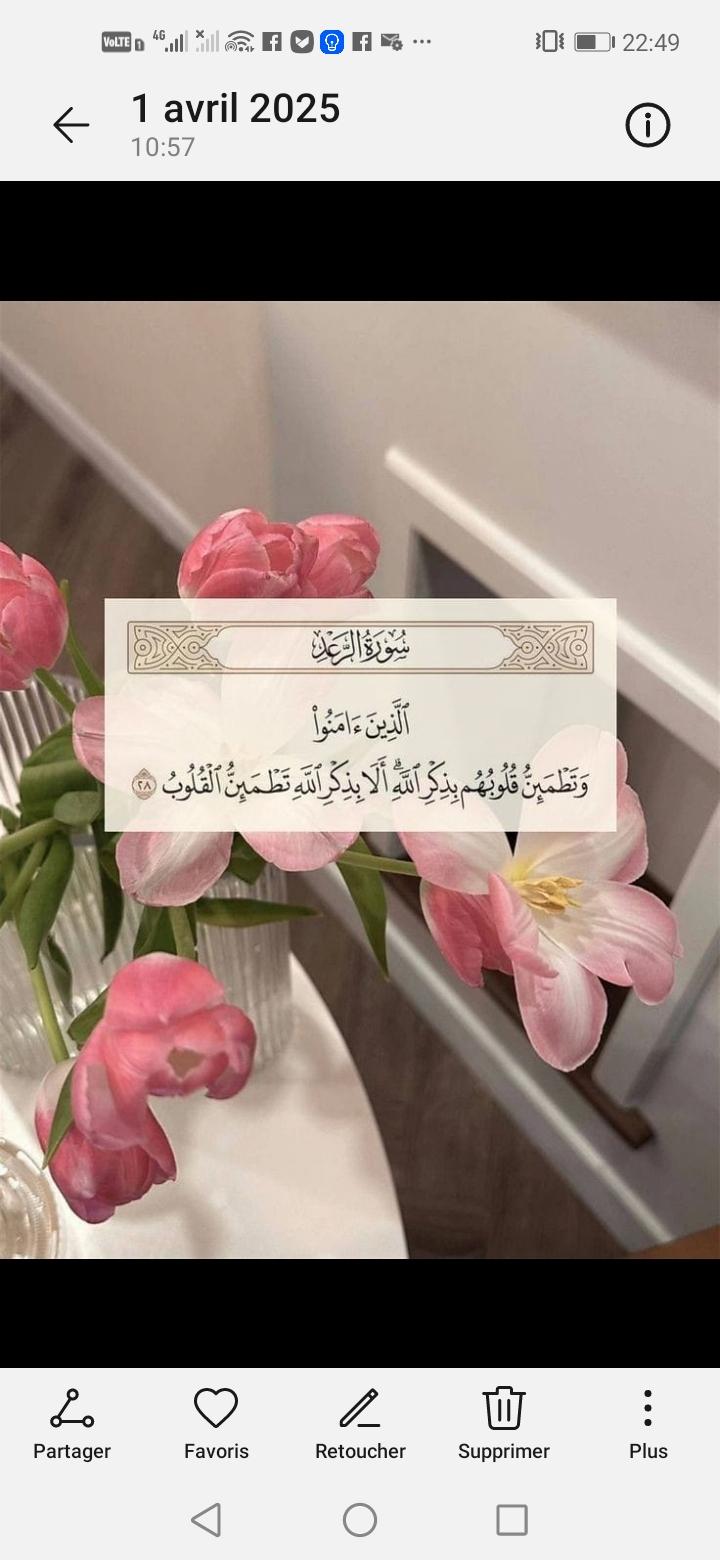 VoLTE 1 4G 22:49
1 avril 2025
10:57
سُورَةُ الرَّعْدِ
ٱلَّذِينَ ءَامَنُوا۟
وَتَطْمَئِنُّ قُلُوبُهُم بِذِكْرِ ٱللَّهِ ۗ أَلَا بِذِكْرِ ٱللَّهِ تَطْمَئِنُّ ٱلْقُلُوبُ ٢٨
Partager Favoris Retoucher Supprimer Plus